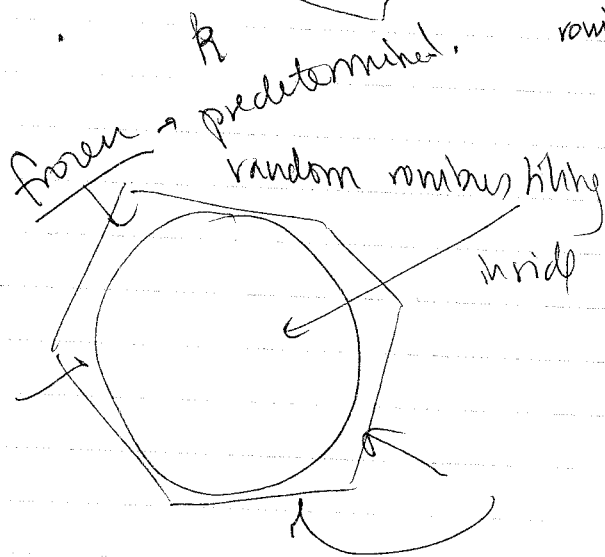 k
frozen → predetermined.
random rombus tiling
inside